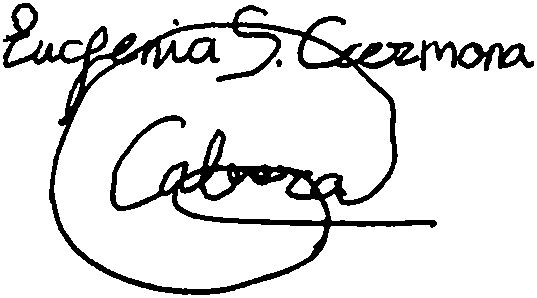 Eugenia S. Germona
Cabrera